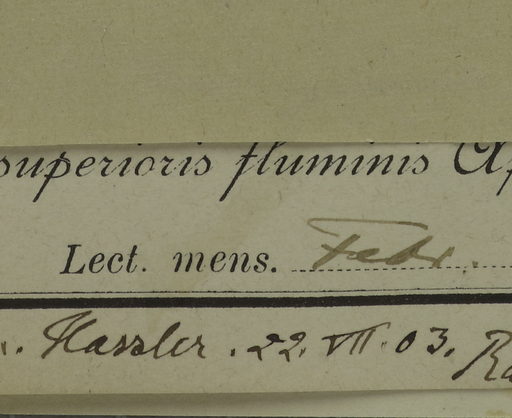 superioris fluminis
Lect. mens. Febr.
Hassler. 22. VII. 03.